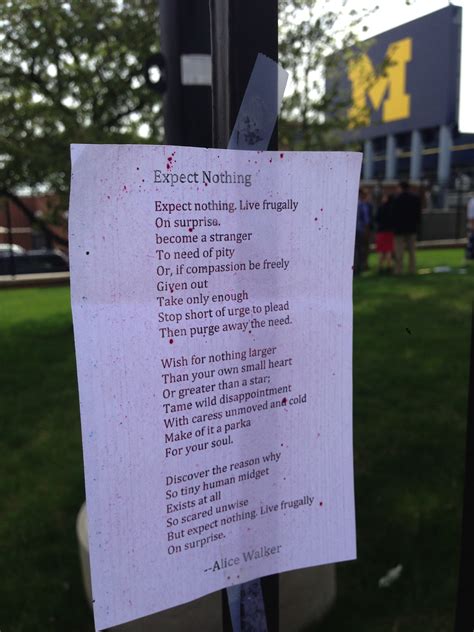 M
Expect Nothing
Expect nothing. Live frugally
On surprise.
become a stranger
To need of pity
Or, if compassion be freely
Given out
Take only enough
Stop short of urge to plead
Then purge away the need.
Wish for nothing larger
Than your own small heart
Or greater than a star;
Tame wild disappointment
With caress unmoved and cold
Make of it a parka
For your soul.
Discover the reason why
So tiny human midget
Exists at all
So scared unwise
But expect nothing. Live frugally
On surprise.
--Alice Walker